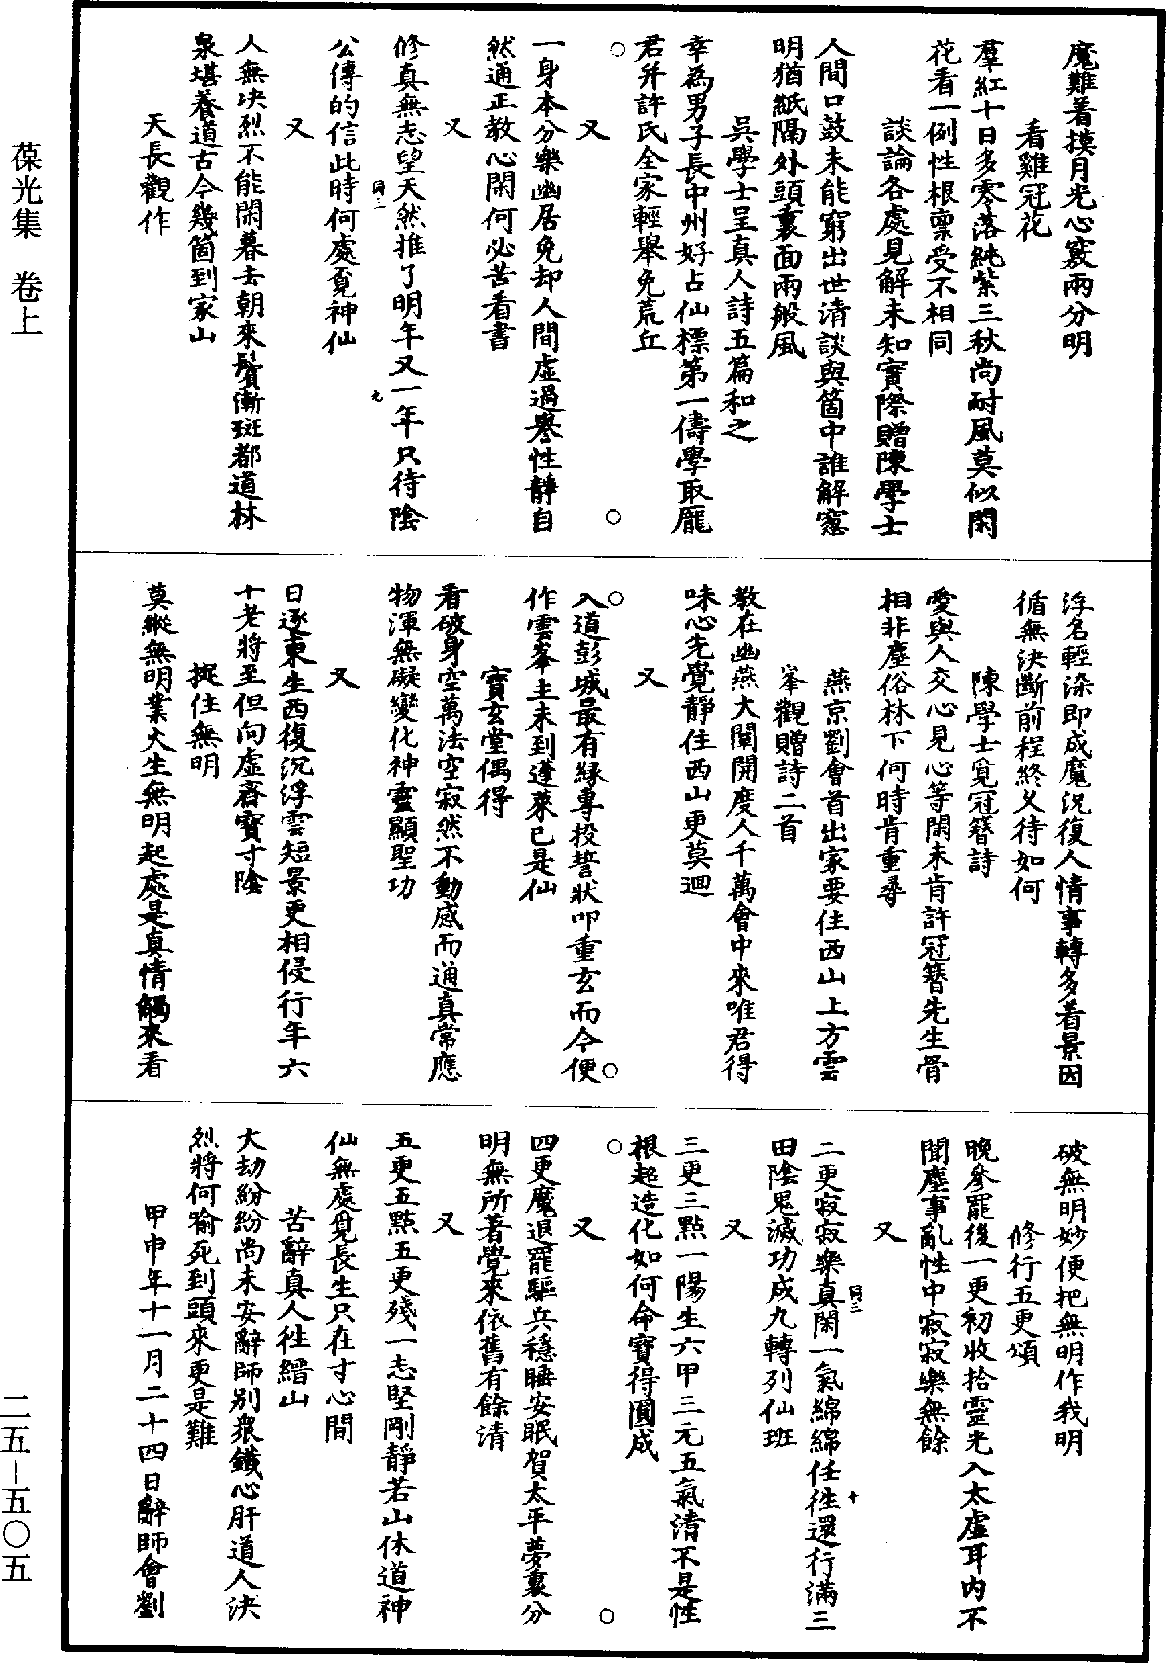 葆光集　卷上
魔難着摸月光心竅兩分明
看雞冠花
羣紅十日多零落純紫三秋尚耐風莫似閑
花看一例性根稟受不相同
談論各處見解未知實際贈陳學士
人間口鼓未能窮出世清談與箇中誰解窻
明猶紙隔外頭裏面兩般風
吳學士呈真人詩五篇和之
幸為男子長中州好占仙標第一儔學取龐
君并許氏全家輕舉免荒丘
又
一身本分樂幽居免却人間虛過譽性靜自
然通正教心閑何必苦看書
又
修真無志望天然推了明年又一年只待陰
公傳的信此時何處覔神仙
又
人無決烈不能閑暮去朝來鬢漸斑都道林
泉堪養道古今幾箇到家山
天長觀作
浮名輕染即成魔況復人情事轉多着景因
循無決斷前程終久待如何
陳學士覓冠簪詩
愛與人交心見心等閑未肯許冠簪先生骨
相非塵俗林下何時肯重尋
燕京劉會首出家要住西山上方雲
峯觀贈詩二首
教在幽燕大闡開度人千萬會中來唯君得
味心先覺靜住西山更莫迴
又
入道彭城最有緣專投誓狀叩重玄而今便
作雲峯主未到蓬萊已是仙
寶玄堂偶得
看破身空萬法空寂然不動感而通真常應
物渾無礙變化神靈顯聖功
又
日逐東生西復沉浮雲短景更相侵行年六
十老將至但向虛齋寶寸陰
捉住無明
莫縱無明業火生無明起處是真情觸來看
破無明妙便把無明作我明
修行五更頌
晚參罷後一更初收拾靈光入太虛耳內不
聞塵事亂性中寂寂樂無餘
又
二更寂寂樂真閑一氣綿綿任徃還行滿三
田陰鬼滅功成九轉列仙班
又
三更三點一陽生六甲三元五氣清不是性
根起造化如何命寶得圓成
又
四更魔退罷驅兵穩睡安眠賀太平夢裏分
明無所著覺來依舊有餘清
又
五更五點五更殘一志堅剛靜若山休道神
仙無處覓長生只在寸心間
苦辭真人徃縉山
大劫紛紛尚未安辭師別衆鐵心肝道人決
烈將何喻死到頭來更是難
甲申年十一月二十四日辭師會劉
二五－五〇五